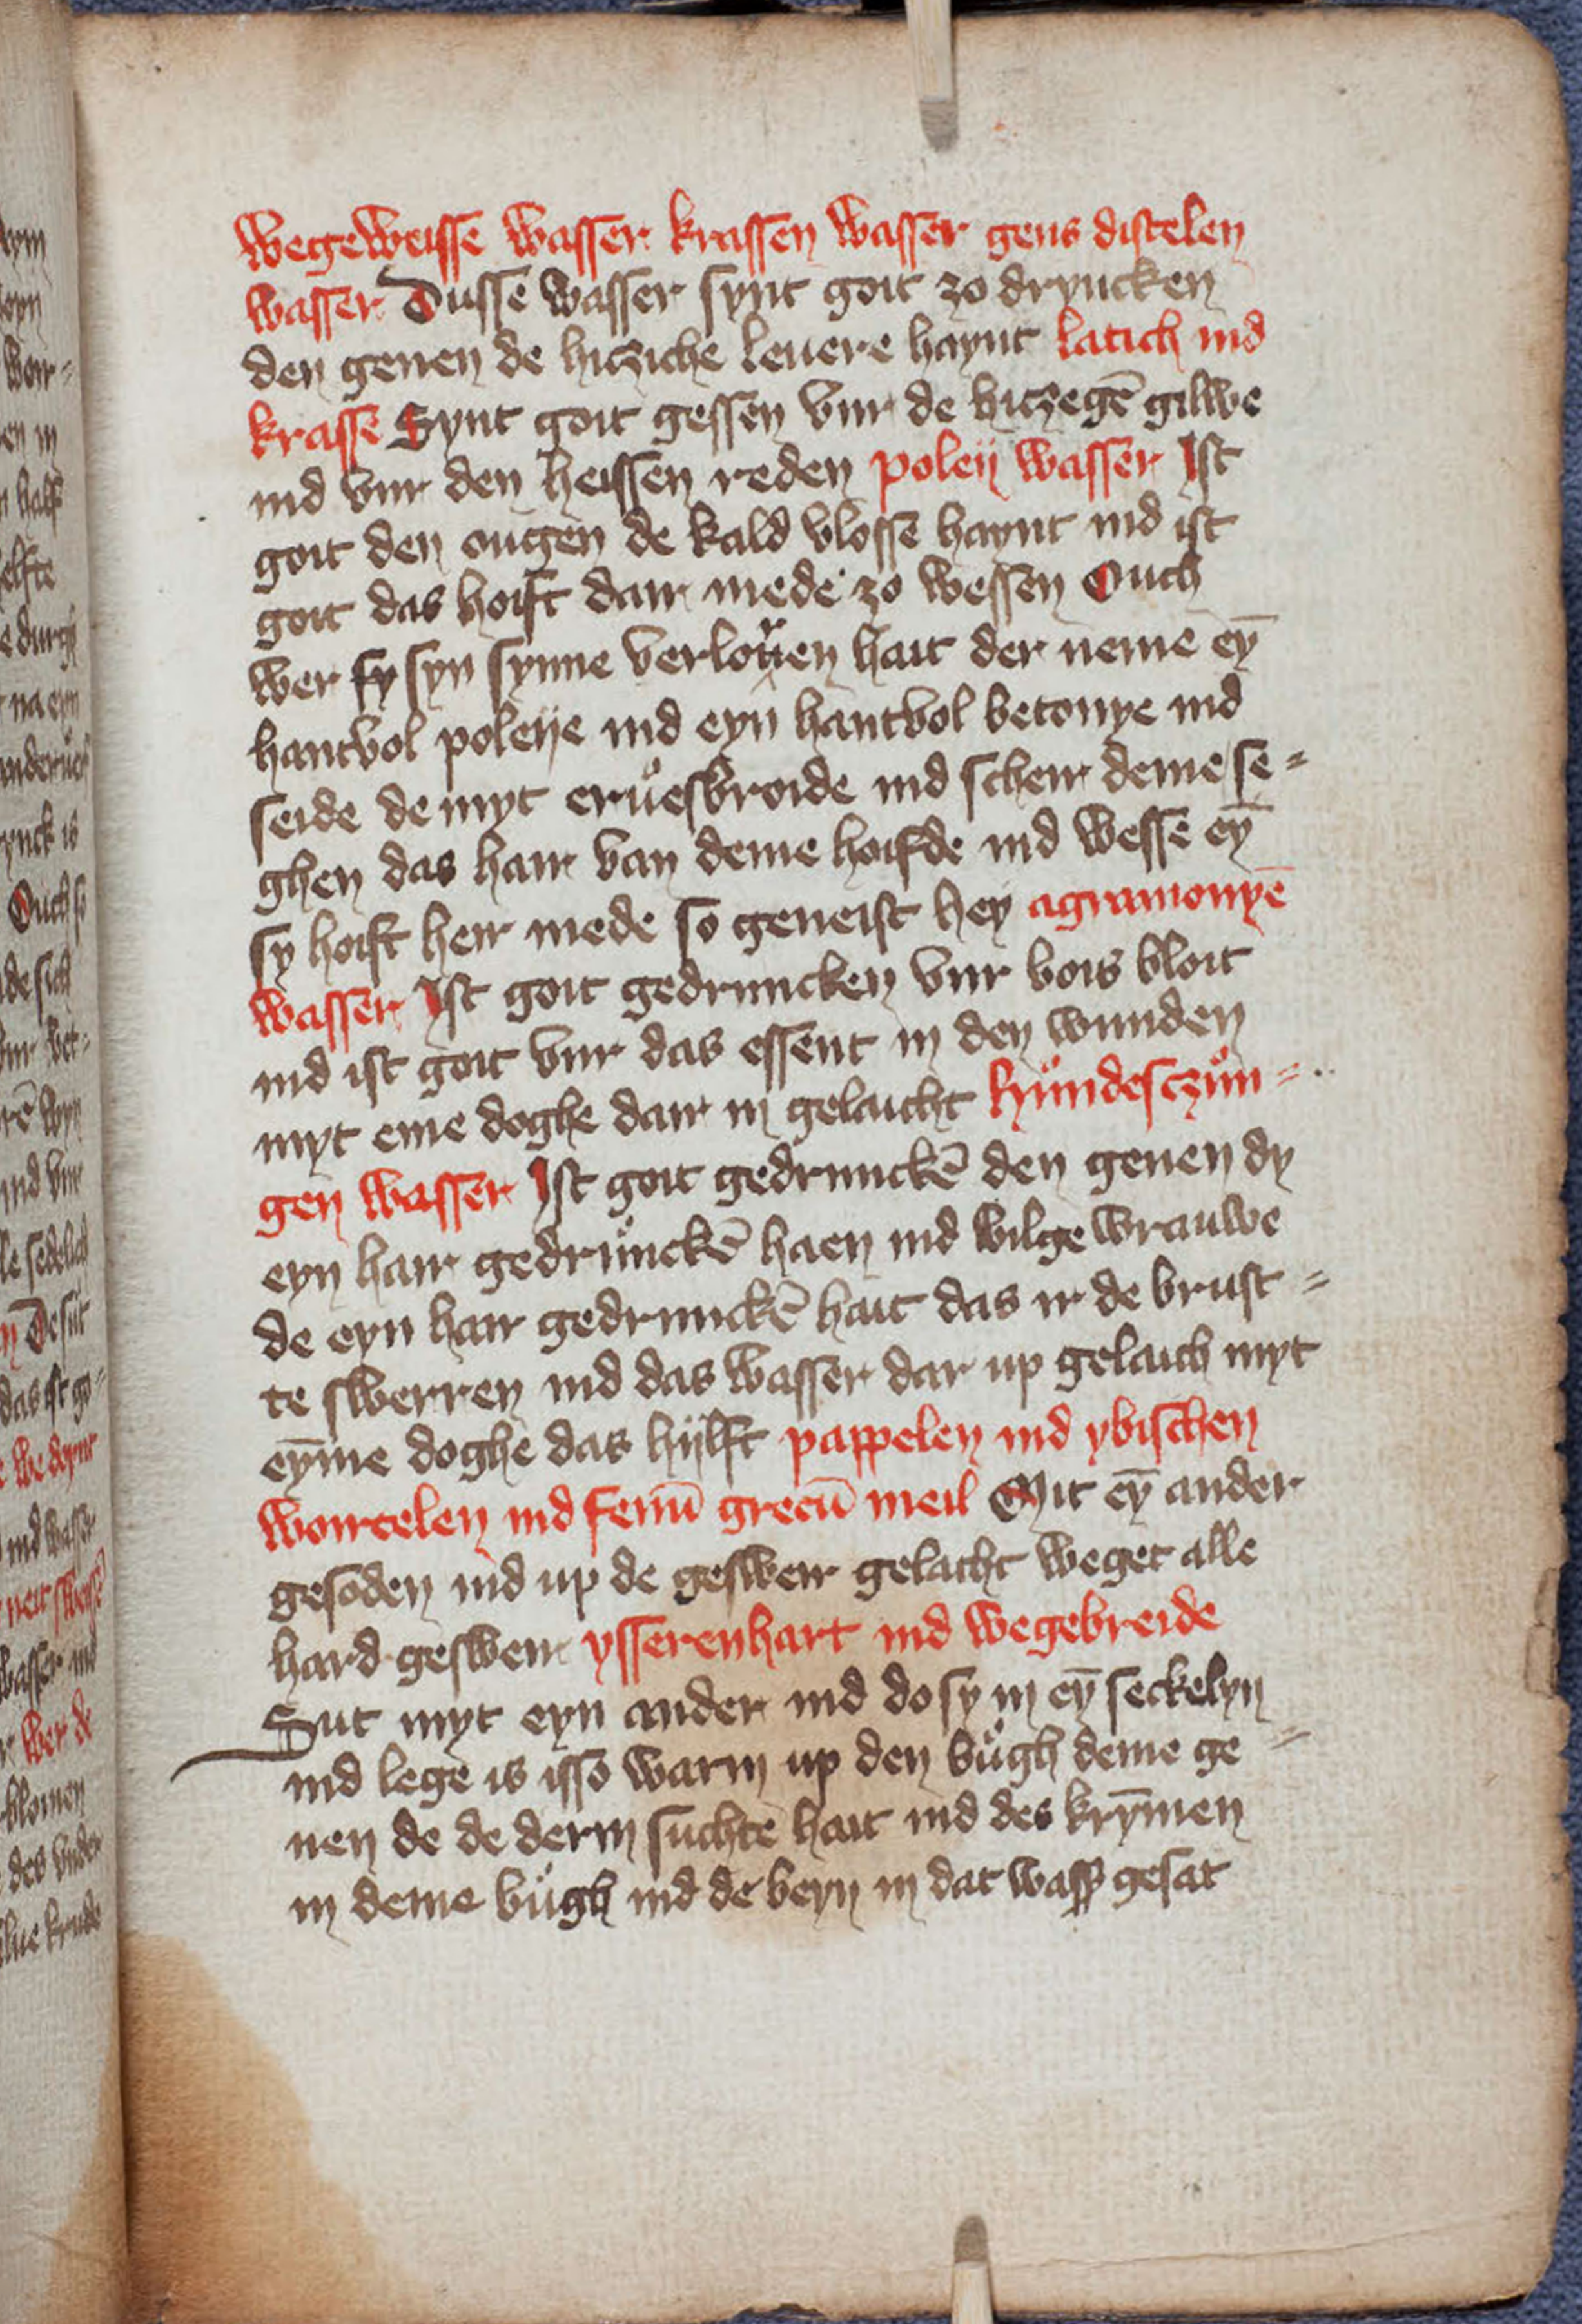 wegeweisse wasser krassen wasser gens distelen
wasser Dusse wasser synt goit zo dryncken
den genen de hicziche leuere haynt latich ind
krasse Synt goit gessen vur de hiczegē gilwe
ind vur den heissen reden poleÿ wasser Ist
goit den ougen de kald vlosse haynt ind ist
goit das hoift dair mede zo wessen Ouch
wer sy syn synne verloren hait der neme eȳ
hantvol poleije ind eyn hantvol betonye ind
seide de myt eruͦesbroide ind scheir deme se=
ghen das hair van deme hoifde ind wesse eȳ
sy hoift heir mede so geneist hey agrimonyē
wasser Ist goit gedruncken vur bois bloit
ind ist goit vur das essent in den wunden
myt eme doghe dair in gelaicht huͦndesczuͦn=
gen wasser Ist goit gedrunckē den genen dy
eyn hair gedruͦnckē haen ind wilge vrauwe
de eyn hair gedrunckē hait das ir de brust=
te swerren ind das wasser dar up gelaich myt
eȳme doghe das hÿlft pappelen ind ybischen
wortzelen ind fenū grecū meil Mit eȳ ander
gesoden ind up de gesweir gelacht weget alle
hard gesweir ysserenhart ind wegebreide
Sut myt eyn ander ind do sy in eȳ seckelyn
ind lege is isso warm up den buͦgh deme ge=
nen de de derm suchte hait ind des krȳmen
in deme buͦgh ind de beyn in dat wass gesat